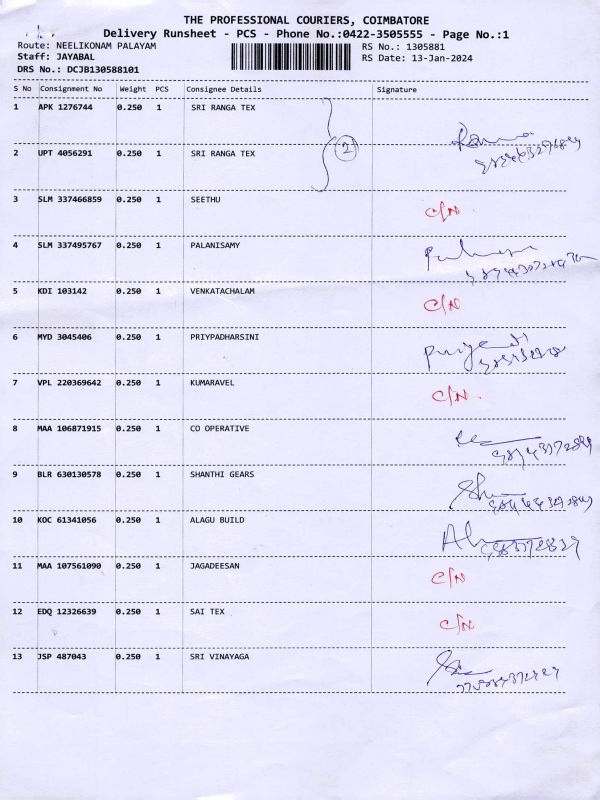 THE PROFESSIONAL COURIERS, COIMBATORE
Delivery Runsheet - PCS - Phone No.:0422-3505555 - Page No.:1
Route: NEELIKONAM PALAYAM RS No.: 1305881
Staff: JAYABAL RS Date: 13-Jan-2024
DRS No.: DCJB130588101
S No Consignment No Weight PCS Consignee Details Signature
1 APK 1276744 0.250 1 SRI RANGA TEX
2
2 UPT 4056291 0.250 1 SRI RANGA TEX
3 SLM 337466859 0.250 1 SEETHU C/N
4 SLM 337495767 0.250 1 PALANISAMY
5 KDI 103142 0.250 1 VENKATACHALAM C/N
6 MYD 3045406 0.250 1 PRIYPADHARSINI
7 VPL 220369642 0.250 1 KUMARAVEL C/N.
8 MAA 106871915 0.250 1 CO OPERATIVE
9 BLR 630130578 0.250 1 SHANTHI GEARS
10 KOC 61341056 0.250 1 ALAGU BUILD
11 MAA 107561090 0.250 1 JAGADEESAN C/N
12 EDQ 12326639 0.250 1 SAI TEX C/N
13 JSP 487043 0.250 1 SRI VINAYAGA